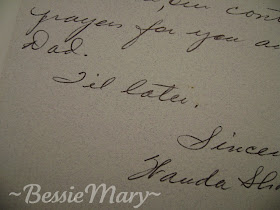 prayers for you an
Dad.
Til later,
Sincer
Wanda Sh
~BessieMary~